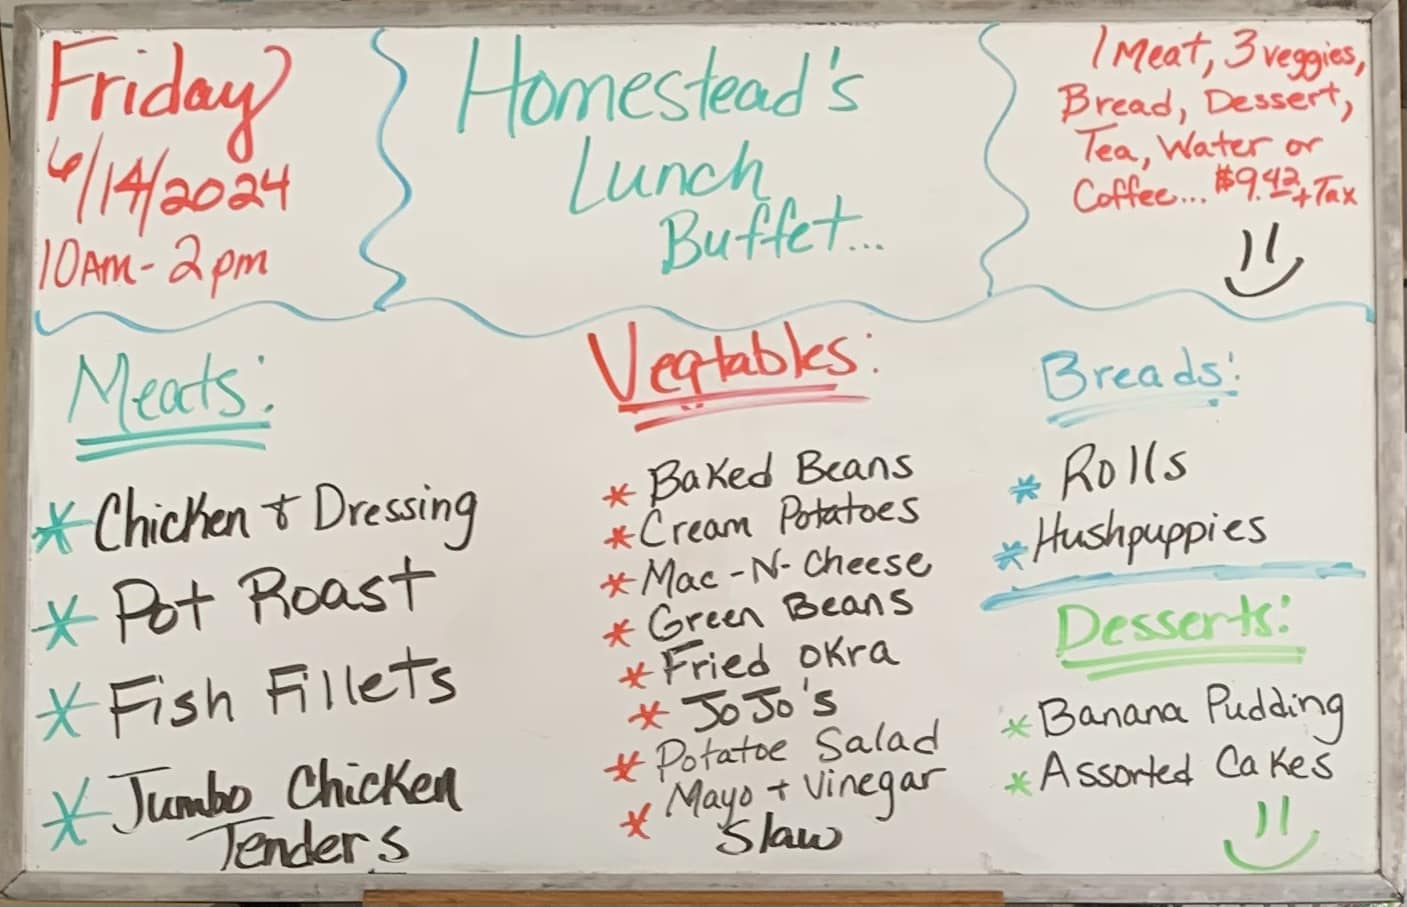 Friday
6/14/2024
10AM - 2pm
Homestead's
Lunch
Buffet...
1 Meat, 3 veggies,
Bread, Dessert,
Tea, Water or
Coffee... $9.42 + Tax
Meats:
* Chicken + Dressing
* Pot Roast
* Fish Fillets
* Jumbo Chicken
Tenders
Vegtables:
* Baked Beans
* Cream Potatoes
* Mac-N-Cheese
* Green Beans
* Fried Okra
* JoJo's
* Potatoe Salad
* Mayo + Vinegar
Slaw
Breads:
* Rolls
* Hushpuppies
Desserts:
* Banana Pudding
* Assorted Cakes